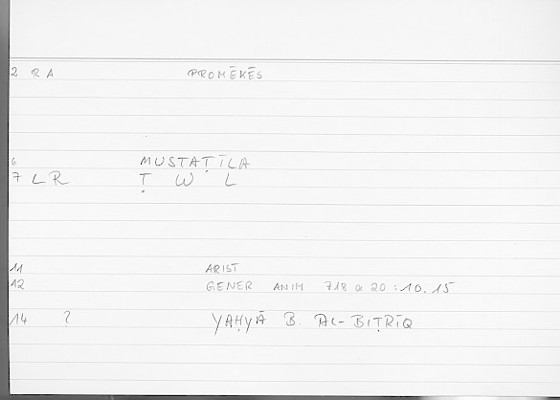 2 RA PROMĒKĒS
6 MUSTAṬĪLA
7 LR Ṭ W L
11 ARIST
12 GENER ANIM 718 a 20 : 10.15
14 ? YAḤYĀ B. AL-BIṬRĪQ